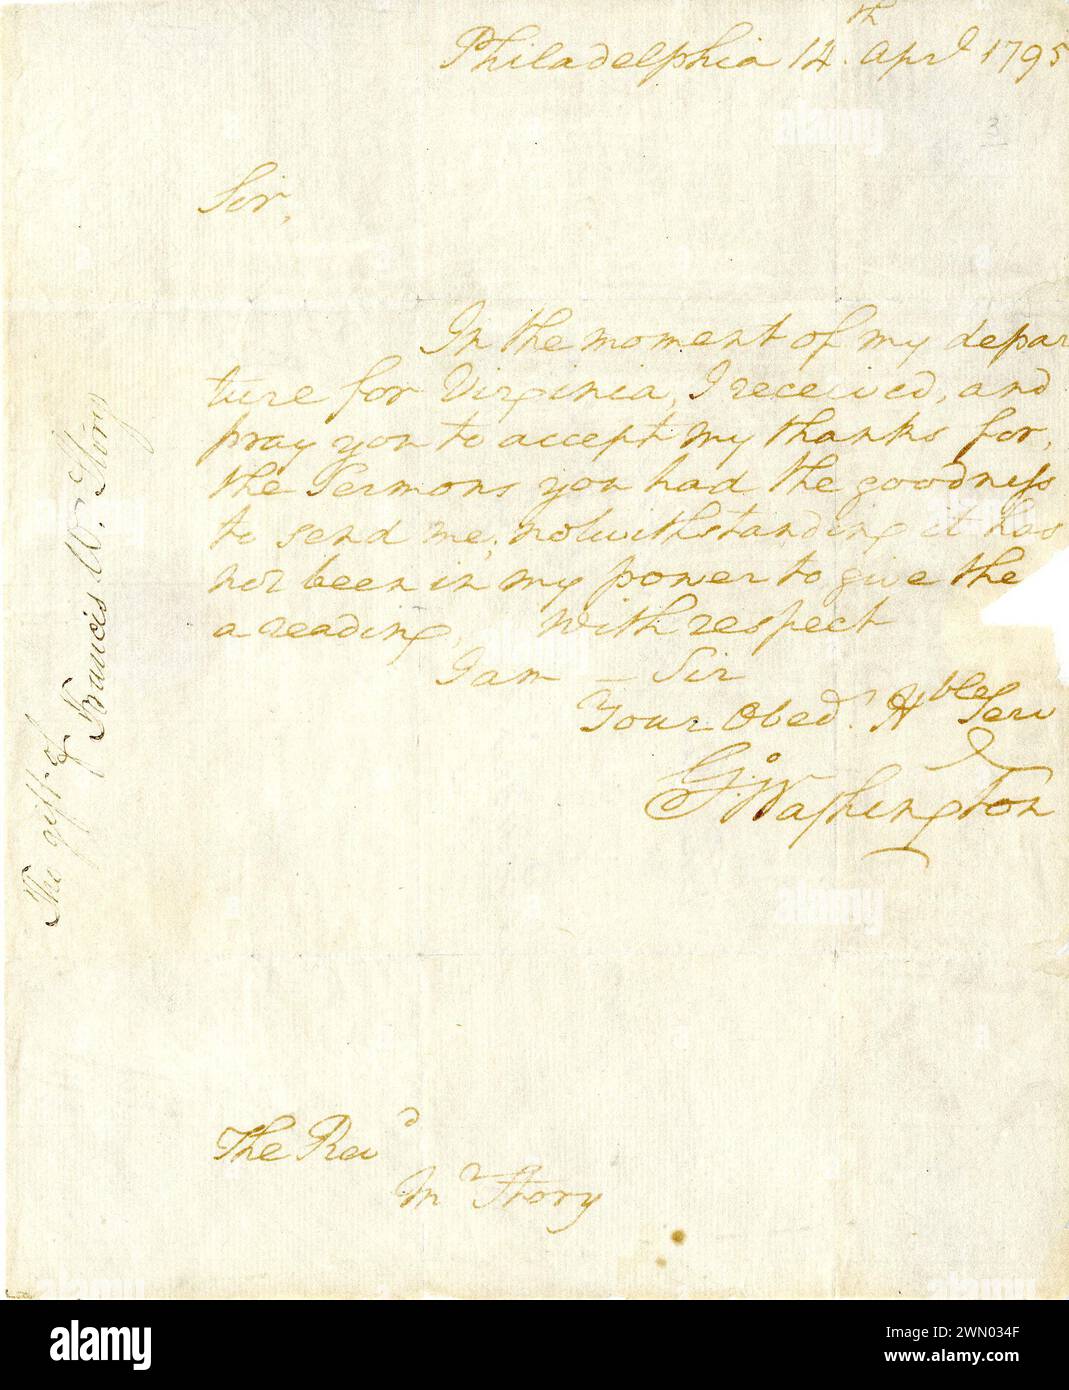 Philadelphia 14.th Aprl 1795
3
Sir,
In the moment of my depar
ture for Virginia, I received, and
pray you to accept my thanks for,
the Sermons you had the goodness
to send me; notwithstanding it has
not been in my power to give the
a reading. With respect
I am – Sir
Your Obedt Hble Serv
Go: Washington
The Revd
Mr Story
The gift of
Francis W. Story
alamy
Image ID: 2WN034F
www.alamy.com